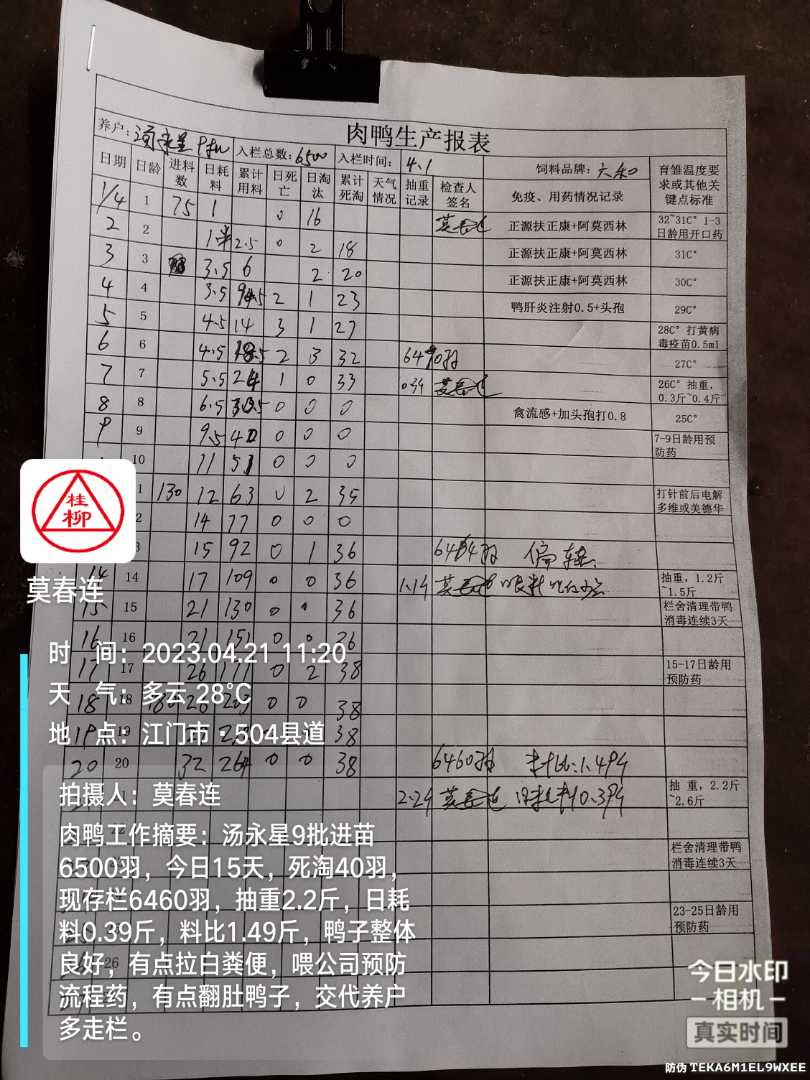 肉鸭生产报表
养户: 入栏总数:6500 入栏时间: 4.1 饲料品牌: 六和 育雏温度要求或其他关键点标准
日期 日龄 进料数 日耗料 累计用料 日死亡 日淘汰 累计死淘 天气情况 抽重记录 检查人签名 免疫、用药情况记录
1/4 1 75 1 0 16 莫春连 32~31C° 1-3日龄用开口药
2 2 1半 2.5 0 2 18 正源扶正康+阿莫西林 31C°
3 3 3.5 6 2 20 正源扶正康+阿莫西林 30C°
正源扶正康+阿莫西林
4 4 3.5 9.5 2 1 23 鸭肝炎注射0.5+头孢 29C°
5 5 4.5 14 3 1 27 28C° 打黄病毒疫苗0.5ml
6 6 4.5 18.5 2 3 32 27C°
7 7 5.5 24 1 0 33 莫春连 26C° 抽重,0.3斤~0.4斤
8 8 6.5 30.5 0 0 0 禽流感+加头孢打0.8 25C°
9 9 9.5 40 0 0 0 7-9日龄用预防药
10 11 51 0 0 0
1 130 12 63 0 2 35 打针前后电解多维或美德华
2 14 77 0 0 0
3 15 92 0 1 36 偏轻
14 14 17 109 0 0 36 1.1斤 莫春连 抽重,1.2斤~1.5斤
15 15 21 130 0 0 36 栏舍清理带鸭消毒连续3天
16 16 21 151 0 0 36
17 17 26 177 0 2 38 15-17日龄用预防药
18 18 0 0 38
19 19 38
20 20 32 264 0 0 38 6460羽 料比:1.49斤
2.2斤 莫春连 日耗料0.39斤 抽 重,2.2斤~2.6斤
栏舍清理带鸭消毒连续3天
23-25日龄用预防药
26
桂柳
莫春连
时 间:2023.04.21 11:20
天 气:多云 28℃
地 点:江门市·504县道
拍摄人:莫春连
肉鸭工作摘要:汤永星9批进苗
6500羽,今日15天,死淘40羽,
现存栏6460羽,抽重2.2斤,日耗
料0.39斤,料比1.49斤,鸭子整体
良好,有点拉白粪便,喂公司预防
流程药,有点翻肚鸭子,交代养户
多走栏。
今日水印
相机
真实时间
防伪 TEKA6M1EL9WXEE